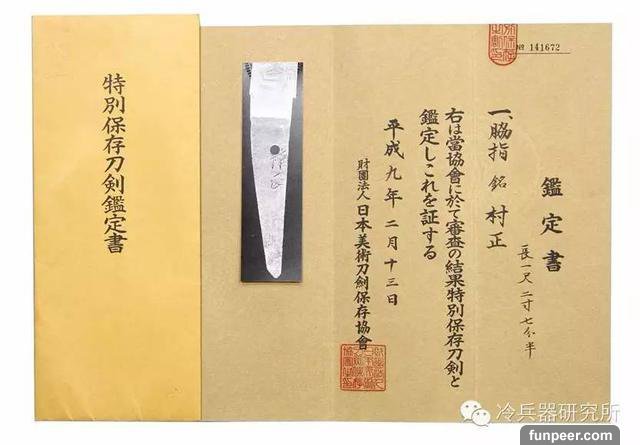 特別保存刀剣鑑定書
№ 141672
鑑定書
一、脇指 銘 村正
長一尺二寸七分半
右は當協會に於て審査の結果特別保存刀剣と
鑑定しこれを証する
平成九年二月十三日
財團法人 日本美術刀劍保存協會
冷兵器研究所
funpeer.com